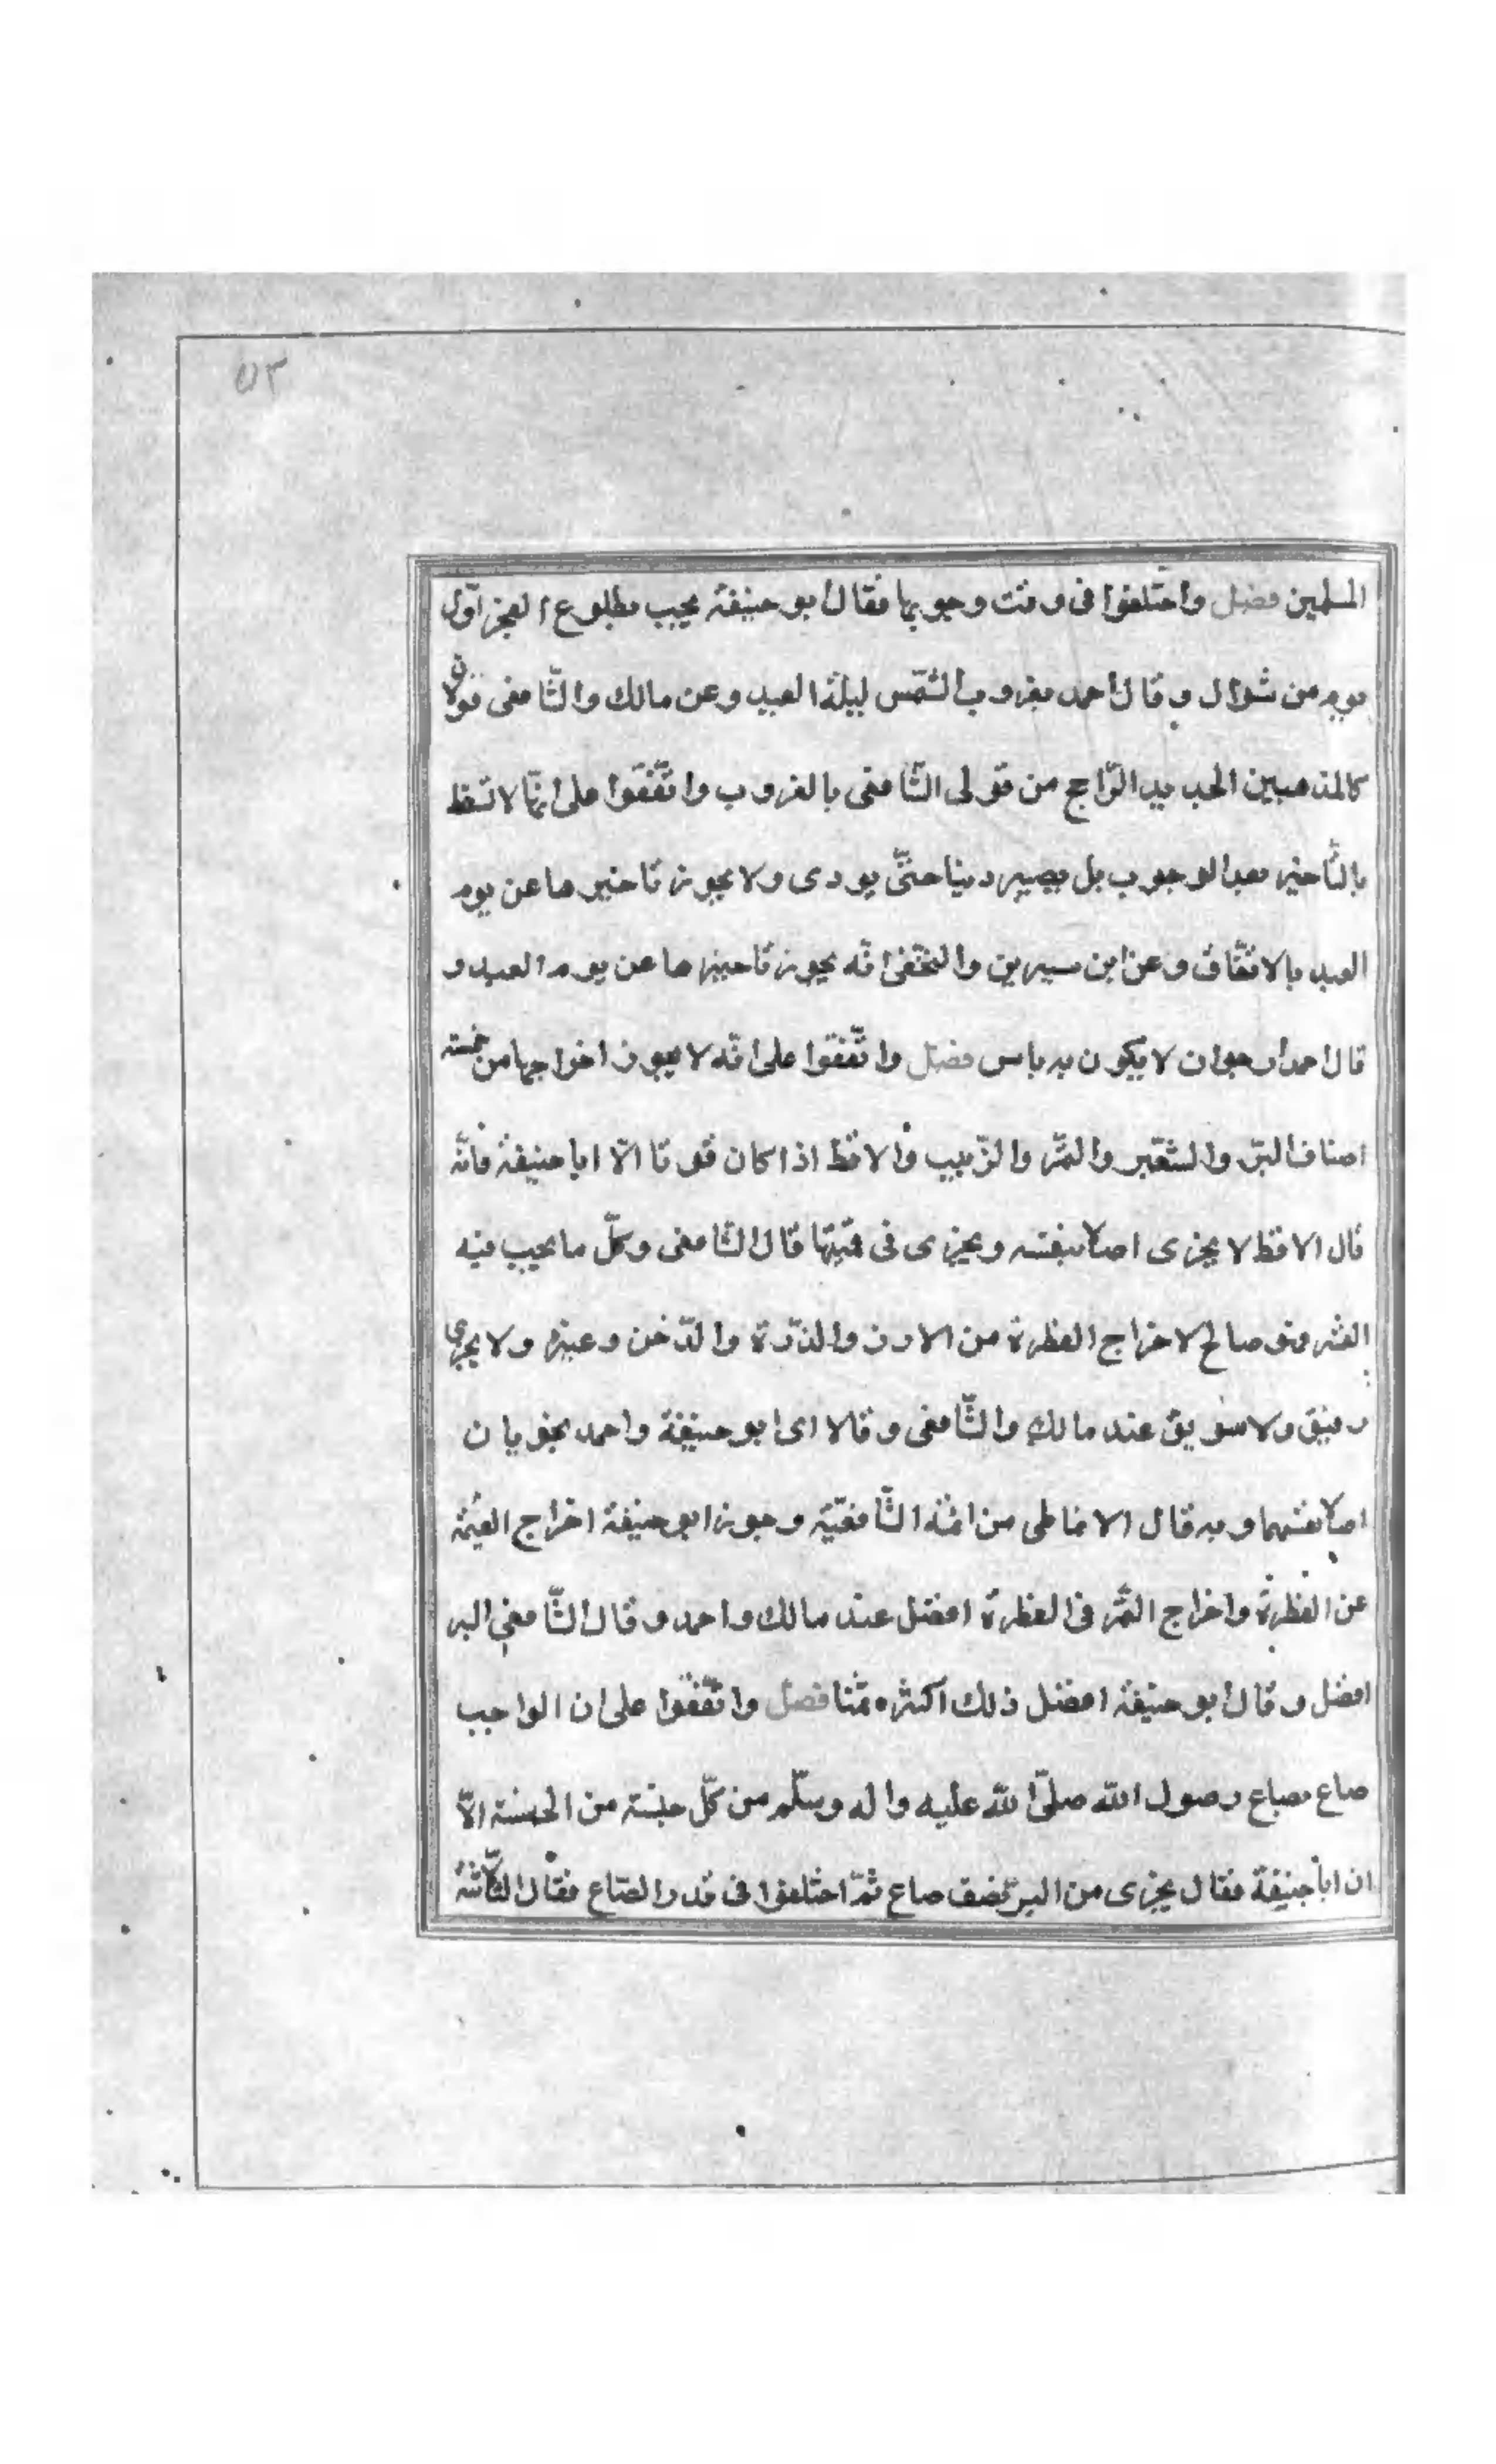 ٥٣
المسلمين فصل واختلفوا فى وقت وجوبها فقال ابو حنيفة يجب بطلوع الفجر اوّل
يوم من شوال وقال احمد بغروب الشمس ليلة العيد وعن مالك والشّافعى قولان
كالمذهبين الجديد الرّاجح من قولى الشّافعى بالغروب واتّفقوا على انّها لا تسقط
بالتّاخير بعد الوجوب بل يصير دينا حتّى يودى ولا يجوز تاخيرها عن يوم
العيد بالاتفّاق وعن ابن سيرين والنخعى انّه يجوز تاخيرها عن يوم العيد و
قال احمد ارجو ان لا يكون به باس فصل واتّفقوا على انّه لا يجوز اخراجها من خمسة
اصناف البرّ والشعّير والتمّر والزّبيب والاقط اذا كان قوتا الّا ابا حنيفة فانّه
قال الاقط لا يجزى اصلا بنفسه ويجزى فى قيمتها قال الشافعى وكلّ ما يجب فيه
العشر فهو صالح لاخراج الفطرة من الارز والذرّة والدّخن وغيره ولا يجزى
دقيق ولا سويق عند مالك والشّافعى وقالا اى ابو حنيفة واحمد يجزيان
اصلا بنفسهما وبه قال الانماطى من ائمة الشّافعيّة وجوز ابو حنيفة اخراج القيمة
عن الفطرة واخراج التمّر فى الفطرة افضل عند مالك واحمد وقال الشّافعى البر
افضل وقال ابو حنيفة افضل ذلك اكثره ثمنا فصل واتّفقوا على ان الواجب
صاع بصاع رصول الله صلّى الله عليه واله وسلّم من كلّ جنسة من الخمسة الّا
ان ابا حنيفة فقال يجزى من البرّ نصف صاع ثمّ اختلفوا فى قدر الصّاع فقال الثّلاثة